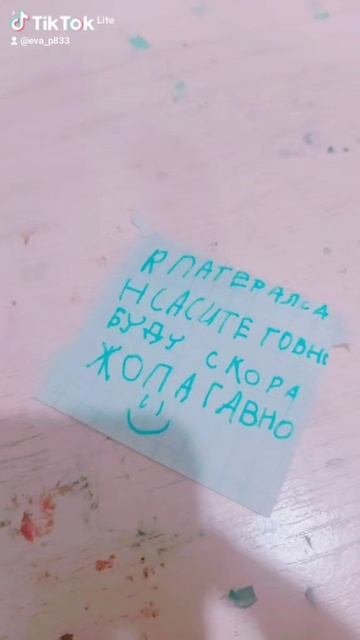 TikTok Lite
@eva_p833
Я ПАТЕРАЛСА
НСАСИТЕ ГОВНО
БУДУ СКОРА
ЖОПА ГАВНО